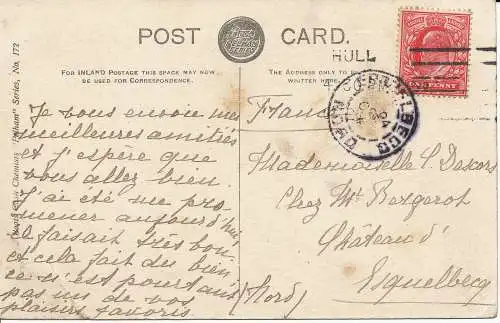 POST CARD.
HULL
FOR INLAND POSTAGE THIS SPACE MAY NOW
BE USED FOR CORRESPONDENCE.
THE ADDRESS ONLY TO BE
WRITTEN HERE
ONE PENNY
"Pelham" Series, No. 172
Je vous envoie mes
meilleures amitiés
et j'espère que
vous allez bien.
J'ai été me pro-
mener aujourd'hui
il faisait très bon
et cela fait du bien
ce n'est pourtant
pas un de vos
plaisirs favoris
France
Mademoiselle S. Descors
Chez Mr Bergerot
Château d'
Esquelbecq
(Nord)
ESQUELBECQ
NORD